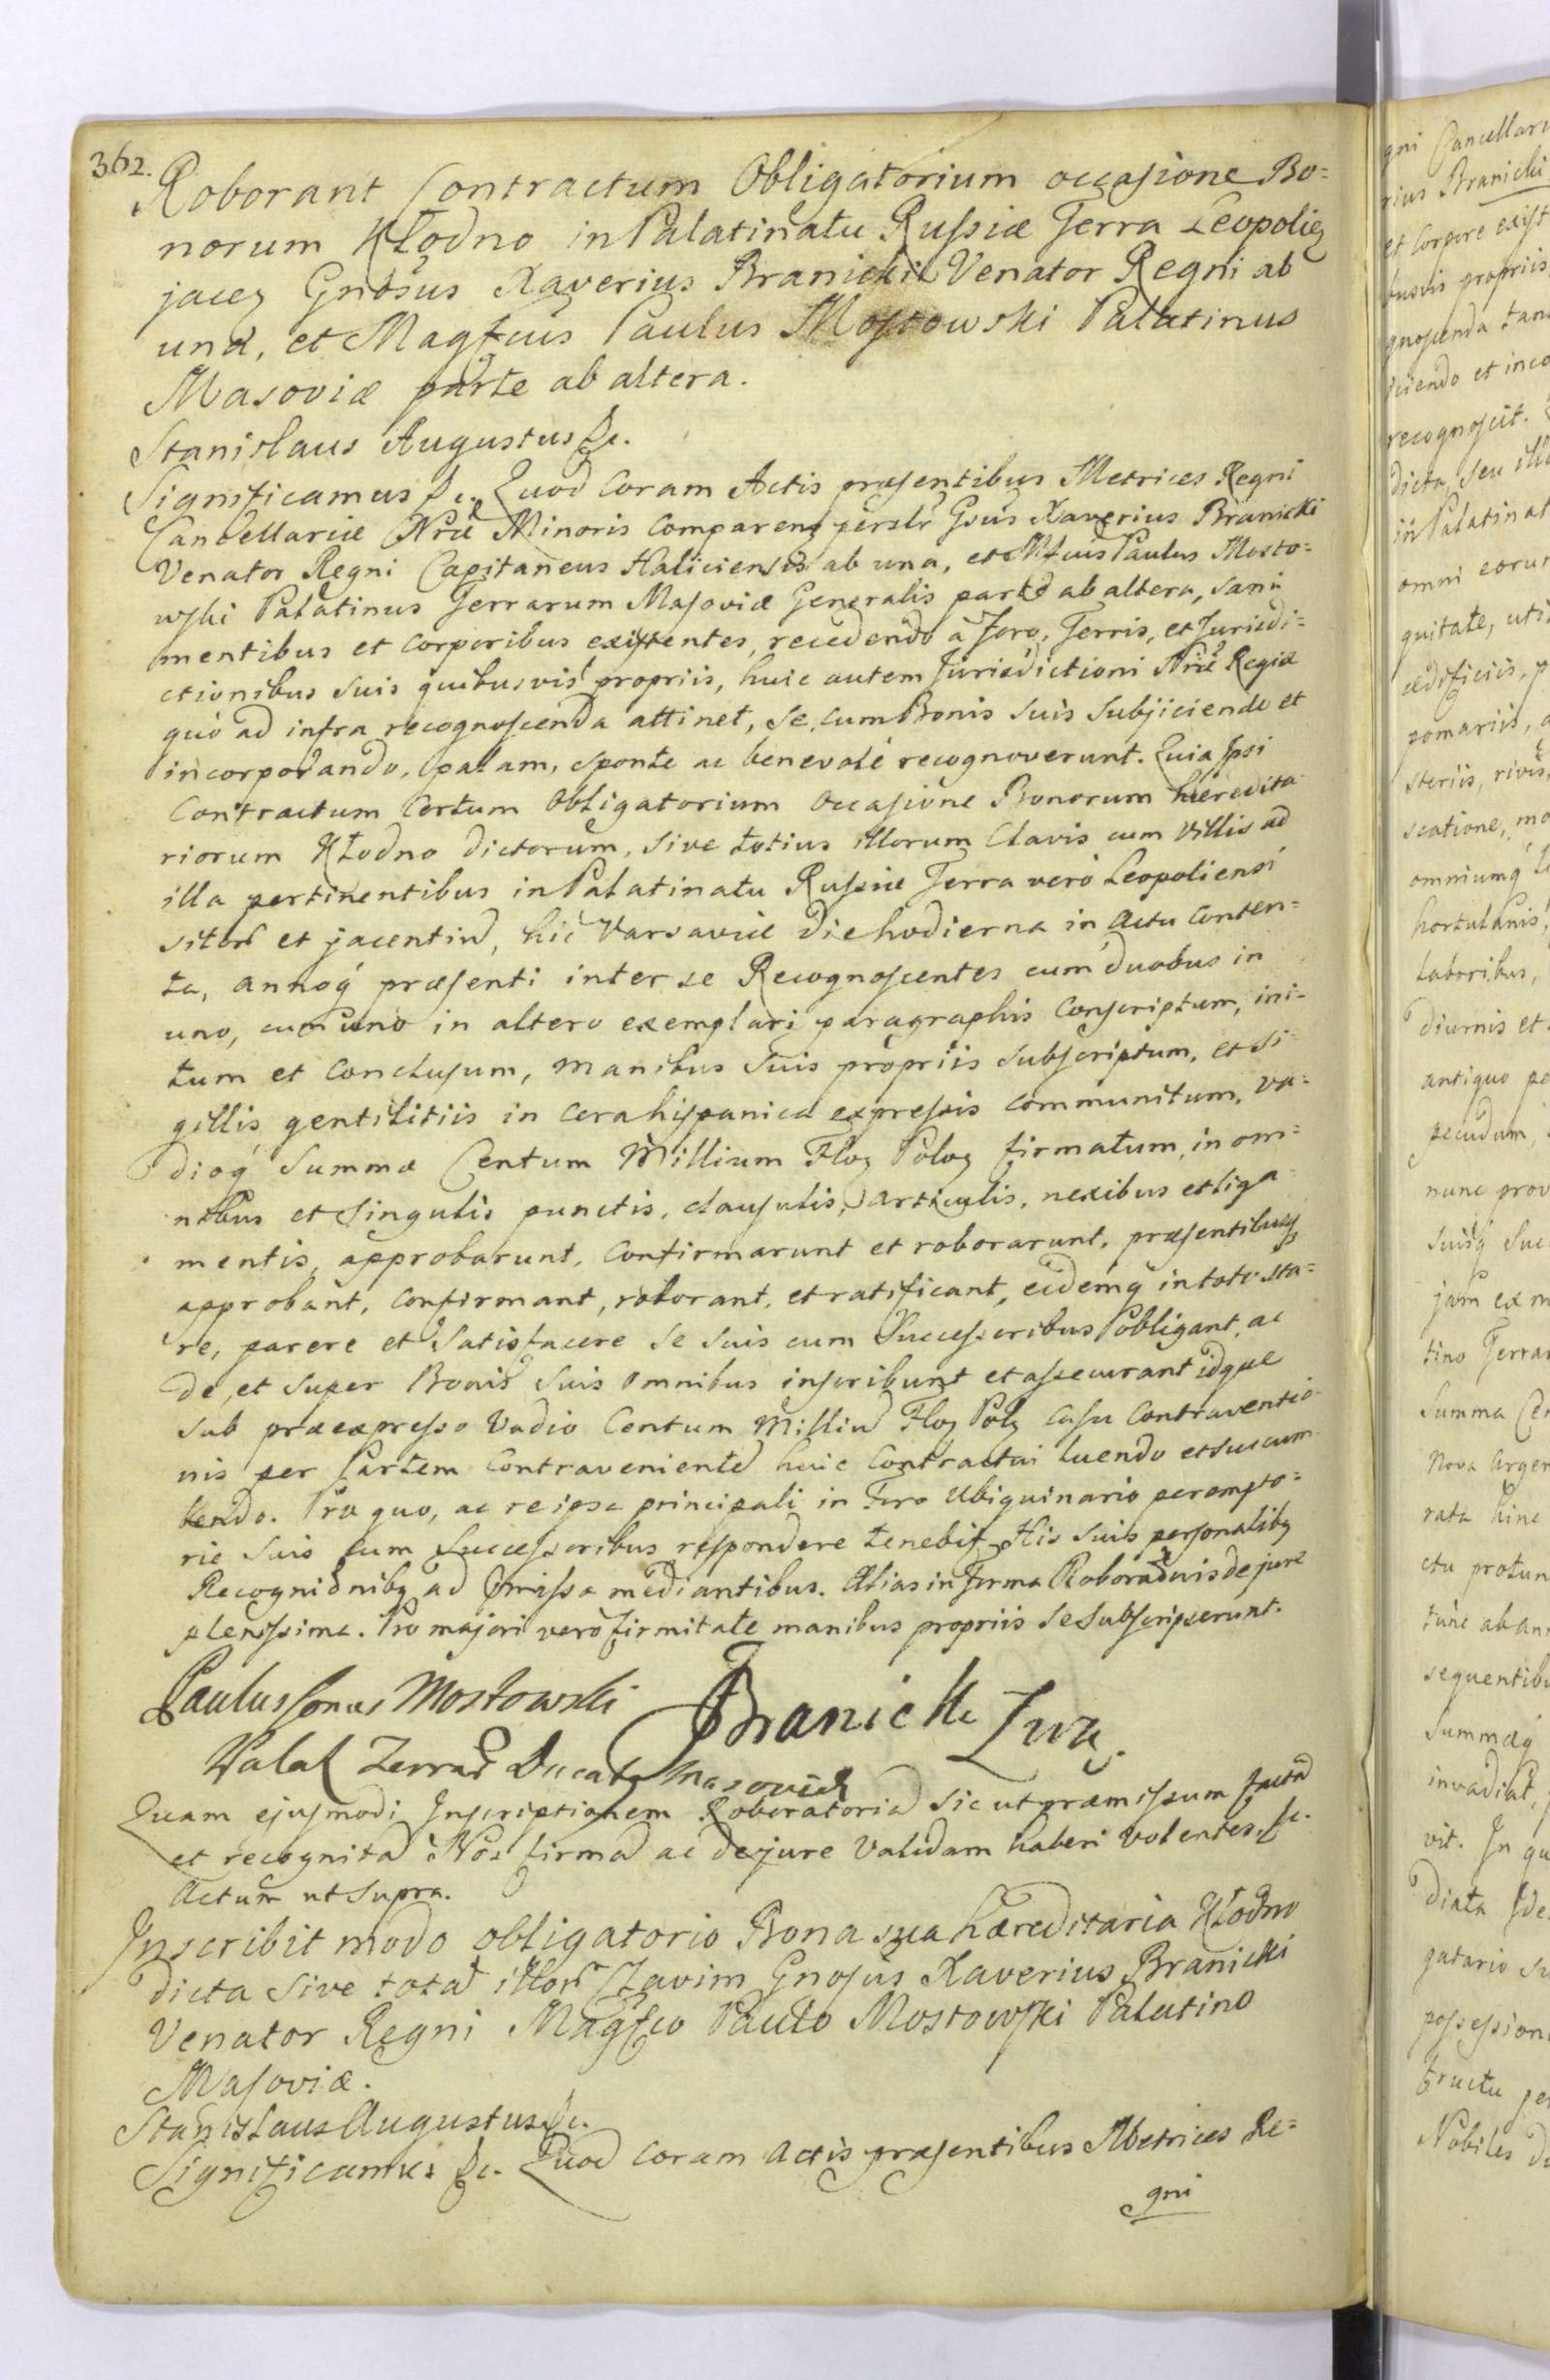 362.
Roborant Contractum Obligatorium occasione Bo=
norum Kłodno in Palatinatu Russiæ Terra Leopolien
jacen Gnosus Xaverius Branicki Venator Regni ab
una, et Magfcus Paulus Mostowski Palatinus
Masoviæ parte ab altera.
Stanislaus Augustus &c.
Significamus &c. Quod Coram Actis præsentibus Metrices Regni
Cancellariæ Nræ Minoris Comparen persлr Gsus Xaverius Branicki
Venator Regni Capitaneus Haliciensis ab una, et Mfcus Paulus Mosto=
wski Palatinus Terrarum Masoviæ Generalis parte ab altera, sani
mentibus et corporibus existentes, recedendo à Foro, Terris, et Jurisdi=
ctionibus suis quibusvis propriis, huic autem Jurisdictioni Nræ Regiæ
quò ad infra recognoscenda attinet, se cum Bonis suis Subjiciendo et
incorporando, palam, sponte ac benevolè recognoverunt. Quia Ipsi
Contractum Certum Obligatorium Occasione Bonorum hæredita
riorum Kłodno dictorum, sive totius illorum Clavis cum Villis ad
illa pertinentibus in Palatinatu Russiæ Terra verò Leopoliensi
sitor et jacentiu, hic Varsaviæ die hodierna in Actu Conten=
ta, annoq præsenti inter se Recognoscentes cum duobus in
uno, cum uno in altero exemplari paragraphis Conscriptum, ini=
tum et Conclusum, manibus suis propriis subscriptum, et si
gillis gentilitiis in cera hispanica expressis communitum, va=
dioq Summæ Centum Millium Flon Polon firmatum, in om=
nibus et singulis punctis, clausulis, articulis, nexibus et liga
mentis, approbarunt, Confirmarunt et roborarunt, præsentibusq
approbant, Confirmant, roborant, et ratificant, eidemq in toto sta=
re, parere et satisfacere se suis cum Successoribus obligant, ac
de, et super Bonis suis omnibus inscribunt et assecurant idque
sub præexpresso Vadio Centum Milliu Flon Poln casu Contraventio
nis per Partem Contraveniente huic Contractui luendo et succum
bendo. Pro quo, ac re ipsa principali in Foro Ubiquinario perempto=
rie suis cum Successoribus respondere tenebit. His suis personalibq
Recognionibq ad Præmissa mediantibus. Alias in Forma Roboraonis de jure
plenissima. Pro majori vero firmitate manibus propriis se subscripserunt.
Paulus Comes Mostowski
Branicki Łwk.
Palat Terrar Ducatq Masoviæ
Quam ejusmodi Inscriptionem Roboratoria sic ut præmissum facta
et recognita Nos firma ac de jure Validam haberi volentes. &c.
Actum ut Supra.
Inscribit modo obligatorio Bona sua hæreditaria Kłodno
dicta sive tota illor Clavim Gnosus Xaverius Branicki
Venator Regni Magfco Paulo Mostowski Palatino
Masoviæ.
Stanislaus Augustus &c.
Significamus &c. Quod Coram Actis præsentibus Metrices Re=
gni
gni Cancellari
rius Branicki
et Corpore exist
busvis propriis
gnoscenda tan
iciendo et inco
recognoscit.
dicta, seu ill
in Palatinat
omni eorum
quitate, uti
ædificiis, p
pomariis, a
steriis, rivis,
scatione, mo
omniumq
hortulanis,
laboribus,
diurnis et
antiquo pe
pecudum,
nunc prov
suisq Suc
jam ex m
tino Terrar
Summa Cen
Nova Argen
rata hinc
ctu protun
tunc ab an
sequentibu
Summæq
invadiat,
vit. In qu
diata Ide
gatario su
possession
tructu pe
Nobiles d